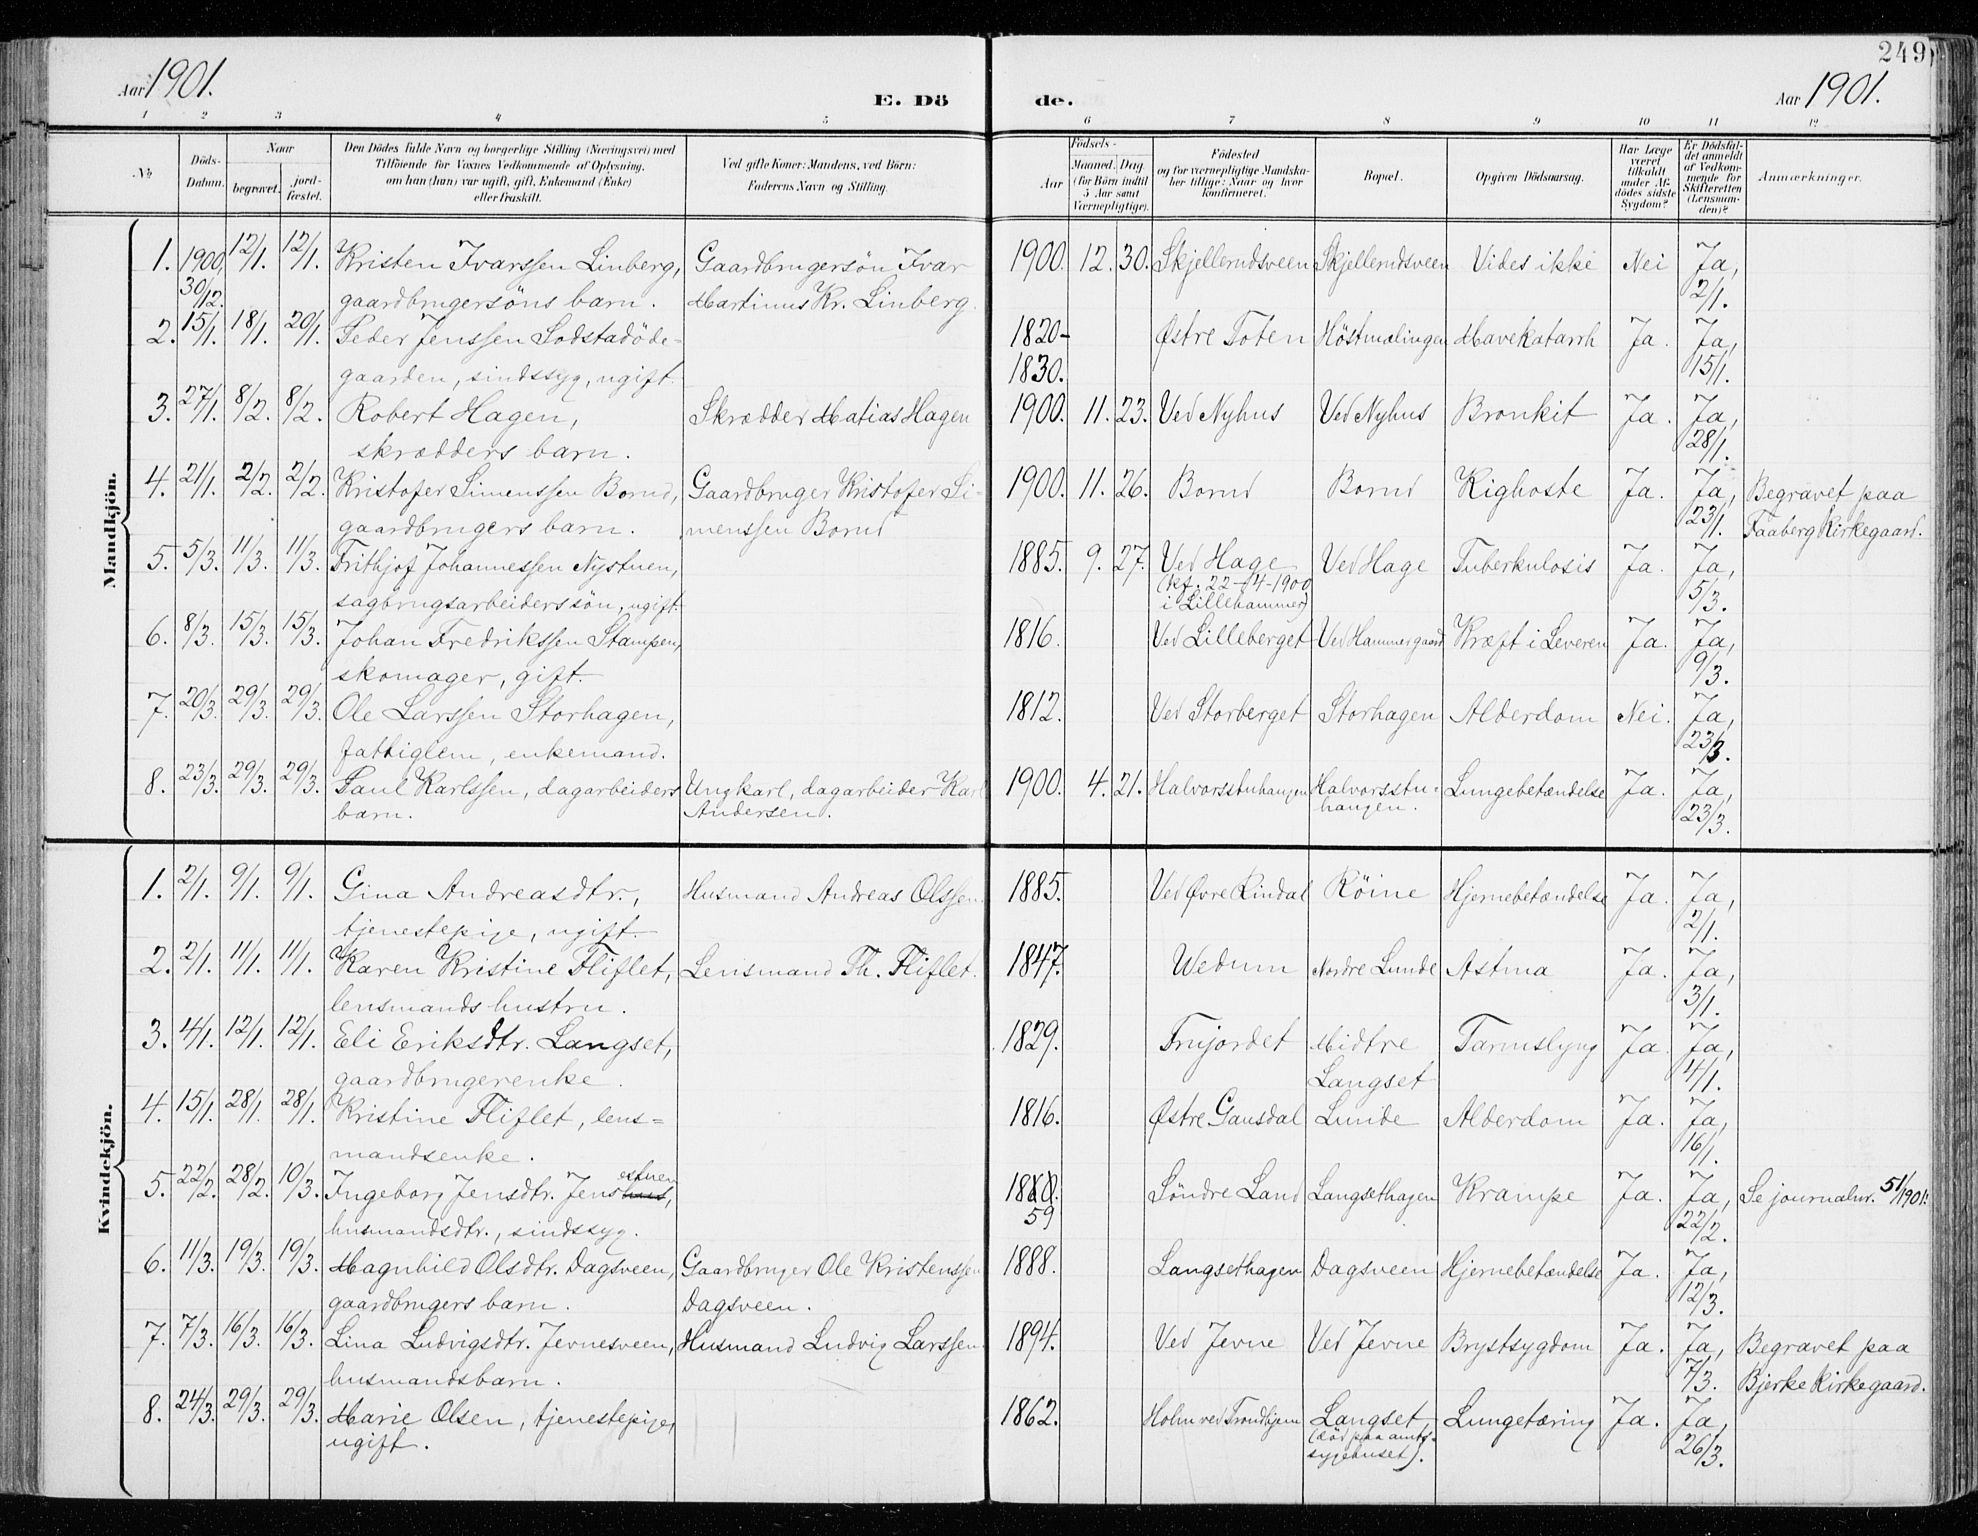 249
Aar 1901.
E. Dö
de.
Aar 1901.
1 2 3 4 5 6 7 8 9 10 11 12
No.
Döds-Datum.
Naar
begravet.
jord-fæstet.
Den Dödes fulde Navn og borgerlige Stilling (Næringsvei) med
Tilföiende for Voxnes Vedkommende af Oplysning,
om han (hun) var ugift, gift, Enkemand (Enke)
eller fraskilt.
Ved gifte Koner: Mandens, ved Börn:
Faderens Navn og Stilling.
Födsels-
Aar
Maaned. Dag.
(for Börn indtil
5 Aar samt
Værnepligtige).
Födested
og for værnepligtige Mandska-
ber tillige: Naar og hvor
konfirmeret.
Bopæl.
Opgiven Dödsaarsag.
Har Læge
været
tilkaldt
under Af-
dödes sidste
Sygdom?
Er Dödsfal-
det anmeldt
af Vedkom-
mende for
Skifteretten
(Lensman-
den)?
Anmærkninger.
Mandkjön.
1. 1900 30/12. 12/1. 12/1. Kristen Ivarssen Linberg, Gaardbrugersön Ivar 1900. 12. 30. Skjellerudsveen Skjellerudsveen Vides ikke Nei Ja, 2/1.
gaardbrugersöns barn. Martinus Kr. Linberg.
2. 15/1. 18/1. 20/1. Peder Jenssen Sodstadöde- 1820- Østre Toten Höstmælingen Mavekatarrh Ja. Ja, 15/1.
gaarden, sindssyg, ugift. 1830.
3. 27/1. 8/2. 8/2. Robert Hagen, Skrædder Matias Hagen 1900. 11. 23. Ved Nyhus Ved Nyhus Bronkit Ja. Ja, 28/1.
skrædders barn.
4. 21/1. 2/2. 2/2. Kristofer Simenssen Bornd, Gaardbruger Kristofer Si- 1900. 11. 26. Bornd Bornd Kighoste Ja. Ja, 23/1. Begravet paa
gaardbrugers barn. menssen Bornd Faaberg Kirkegaard.
5. 5/3. 11/3. 11/3. Frithjof Johannessen Nystuen, 1885. 9. 27. Ved Hage Ved Hage Tuberkulosis Ja. Ja, 5/3.
sagbrugsarbeiderssön, ugift. (kf. 22-/4-1900
i Lillehammer)
6. 8/3. 15/3. 15/3. Johan Fredrikssen Stampen, 1816. Ved Lilleberget Ved Hammergaard Kræft i Leveren Ja. Ja, 9/3.
skomager, gift.
7. 20/3. 29/3. 29/3. Ole Larssen Storhagen, 1812. Ved Storberget Storhagen Alderdom Nei. Ja, 23/3.
fattiglem, enkemand.
8. 23/3. 29/3. 29/3. Paul Karlssen, dagarbeiders Ungkarl, dagarbeider Karl 1900. 4. 21. Halvorsstuhaugen Halvorsstu- Lungebetændelse Ja. Ja, 23/3.
barn. Andersen. haugen.
Kvindekjön.
1. 2/1. 9/1. 9/1. Gina Andreasdtr., Husmand Andreas Olssen. 1885. Ved Øvre Rindal Röine Hjernebetændelse Ja. Ja, 2/1.
tjenestepige, ugift.
2. 2/1. 11/1. 11/1. Karen Kristine Fliflet, Lensmand Th. Fliflet. 1847. Wedum Nordre Lunde Astma Ja. Ja, 3/1.
lensmands hustru.
3. 4/1. 12/1. 12/1. Eli Eriksdtr. Langset, 1829. Frujordet Midtre Tarmslyng Ja. Ja, 4/1.
gaardbrugerenke. Langset
4. 15/1. 28/1. 28/1. Kristine Fliflet, lens- 1816. Østre Gausdal Lunde Alderdom Ja. Ja, 16/1.
mandsenke.
estuen
5. 22/2. 28/2. 10/3. Ingeborg Jensdtr. Jenshaus, 1860. Söndre Land Langsethagen Krampe Ja. Ja, 22/2. Se journalnr. 51/1901.
husmandsdtr., sindssyg. 59
6. 11/3. 19/3. 19/3. Magnhild Olsdtr. Dagsveen, Gaardbruger Ole Kristenssen 1888. Langsethagen Dagsveen Hjernebetændelse Ja. Ja, 12/3.
gaardbrugers barn. Dagsveen.
7. 7/3. 16/3. 16/3. Lina Ludvigsdtr. Jevnesveen, Husmand Ludvig Larssen. 1894. Ved Jevne Ved Jevne Brystsygdom Ja. Ja, 7/3. Begravet paa
husmandsbarn. Bjerke Kirkegaard.
8. 24/3. 29/3. 29/3. Marie Olsen, tjenestepige, 1862. Holm ved Trondhjem Langset Lungetæring Ja. Ja, 26/3.
ugift. (död paa amts-
sygehuset).